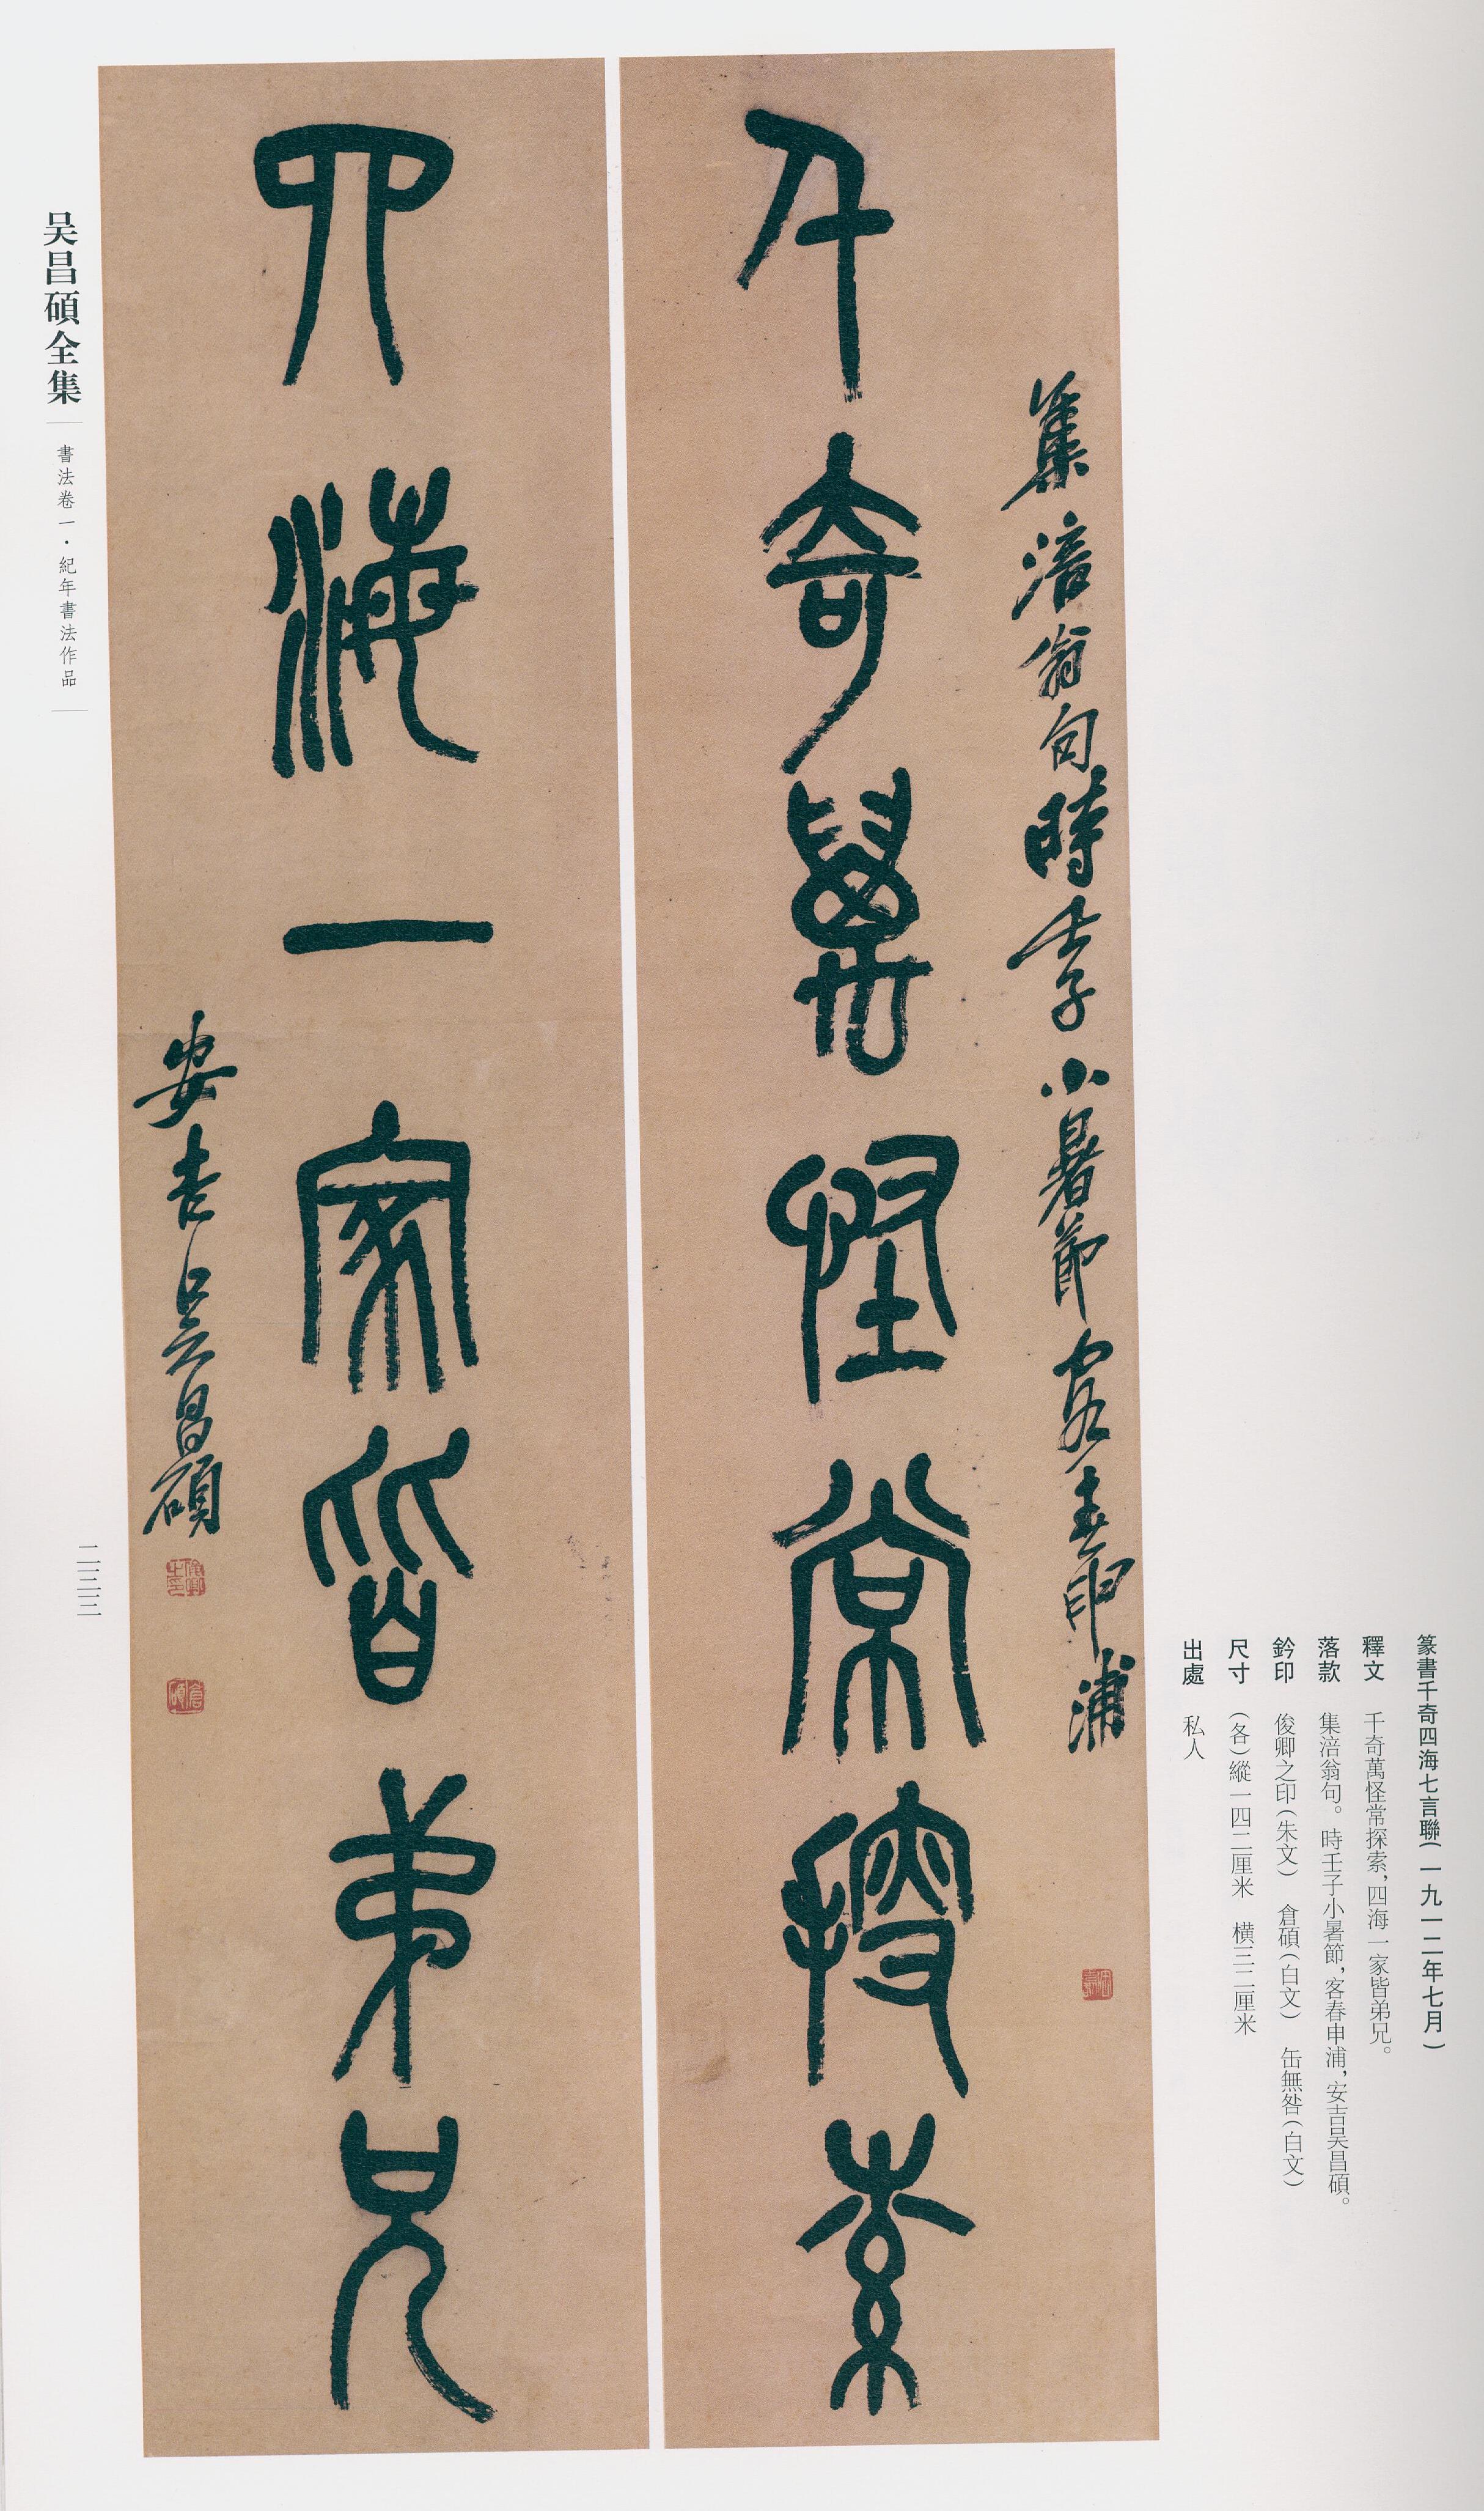 篆書千奇四海七言聯(一九一二年七月)
釋文 千奇萬怪常探索,四海一家皆弟兄。
落款 集涪翁句。時壬子小暑節,客春申浦,安吉吴昌碩。
鈐印 俊卿之印(朱文) 倉碩(白文) 缶無咎(白文)
尺寸 (各)縱一四二厘米 横三二厘米
出處 私人
集涪翁句時壬子小暑節客春申浦
缶無咎
千奇萬怪常探索
四海一家皆弟兄
安吉吴昌碩
俊卿之印
倉碩
吴昌碩全集
書法卷一·紀年書法作品